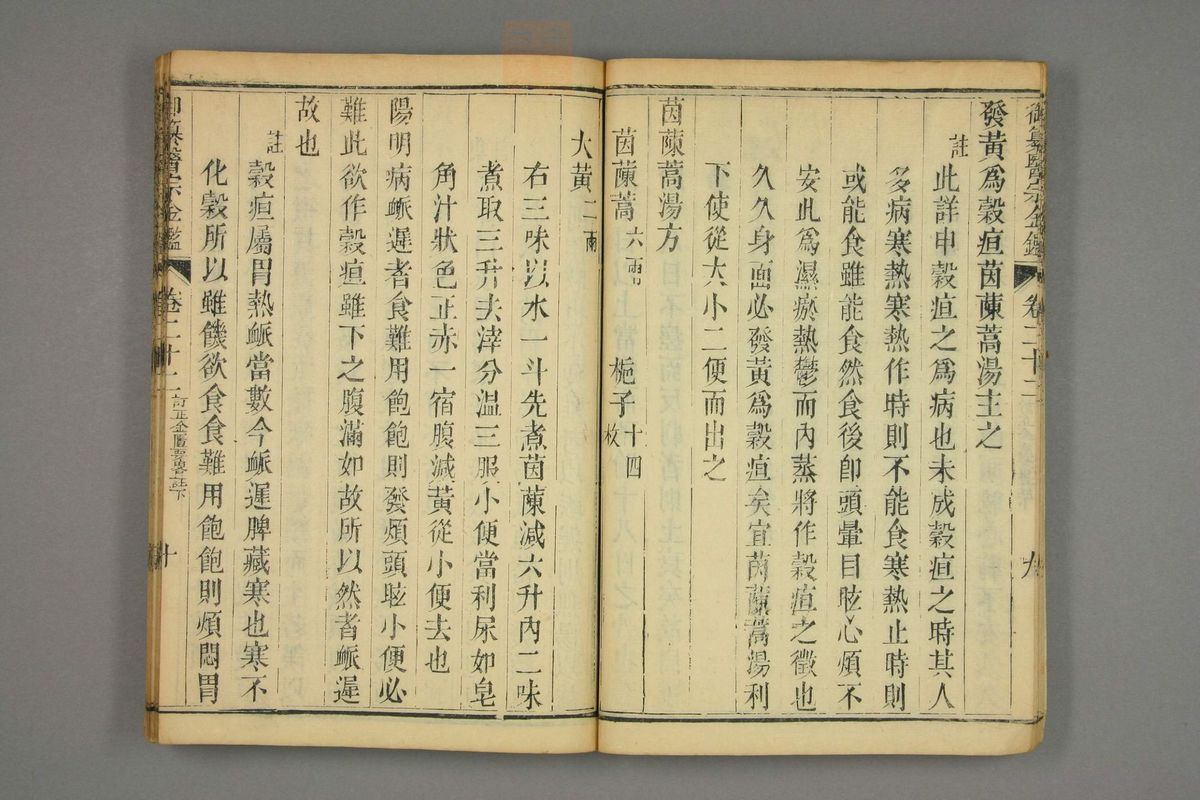 御纂醫宗金鑑 卷二十二 九
發黃爲穀疸茵蔯蒿湯主之
註
此詳申穀疸之爲病也未成穀疸之時其人
多病寒熱寒熱作時則不能食寒熱止時則
或能食雖能食然食後卽頭暈目眩心煩不
安此爲濕瘀熱鬱而內蒸將作穀疸之徵也
久久身面必發黃爲穀疸矣宜茵蔯蒿湯利
下使從大小二便而出之
茵蔯蒿湯方
茵蔯蒿六兩 梔子十四枚
大黃二兩
右三味以水一斗先煮茵蔯減六升內二味
煮取三升去滓分溫三服小便當利尿如皂
角汁狀色正赤一宿腹減黃從小便去也
陽明病脈遲者食難用飽飽則發煩頭眩小便必
難此欲作穀疸雖下之腹滿如故所以然者脈遲
故也
註
穀疸屬胃熱脈當數今脈遲脾藏寒也寒不
化穀所以雖饑欲食食難用飽飽則煩悶胃
御纂醫宗金鑑 卷二十二 訂正金匱要略註下 十